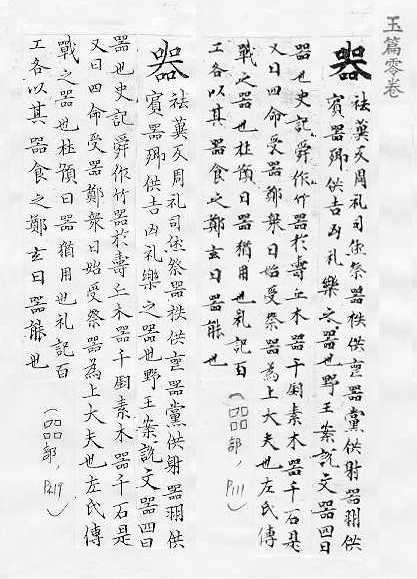 玉篇零卷
器 祛冀反周礼司徒祭器秩供䘮器黨供射器州供
賓器鄉供吉凶礼樂之器也野王案說文器皿曰
器也史記舜作竹器於壽丘木器千素木器千石是
又曰四命受器鄭衆曰始受祭器為上大夫也左氏傳
戰之器也杜預曰器猶用也礼記百
工各以其器食之鄭玄曰器能也
(㗊部, P.111)
器 祛冀反周礼司徒祭器秩供䘮器黨供射器州供
賓器鄉供吉凶礼樂之器也野王案說文器皿曰
器也史記舜作竹器於壽丘木器千素木器千石是
又曰四命受器鄭衆曰始受祭器為上大夫也左氏傳
戰之器也杜預曰器猶用也礼記百
工各以其器食之鄭玄曰器能也
(㗊部,